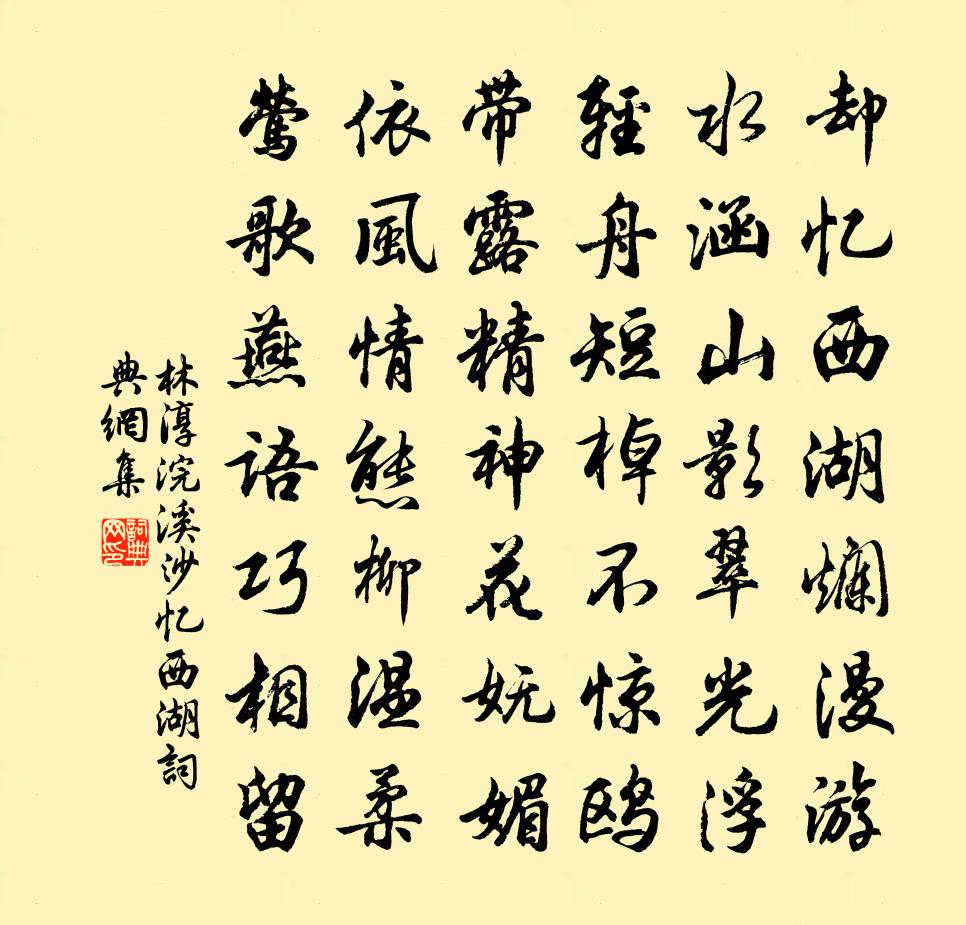 却忆西湖烂漫游
水涵山影翠光浮
輕舟短棹不惊鸥
带露精神花妩媚
依風情態柳温柔
莺歌燕语巧相留
林淳浣溪沙忆西湖詞
典網集
詞典
网印